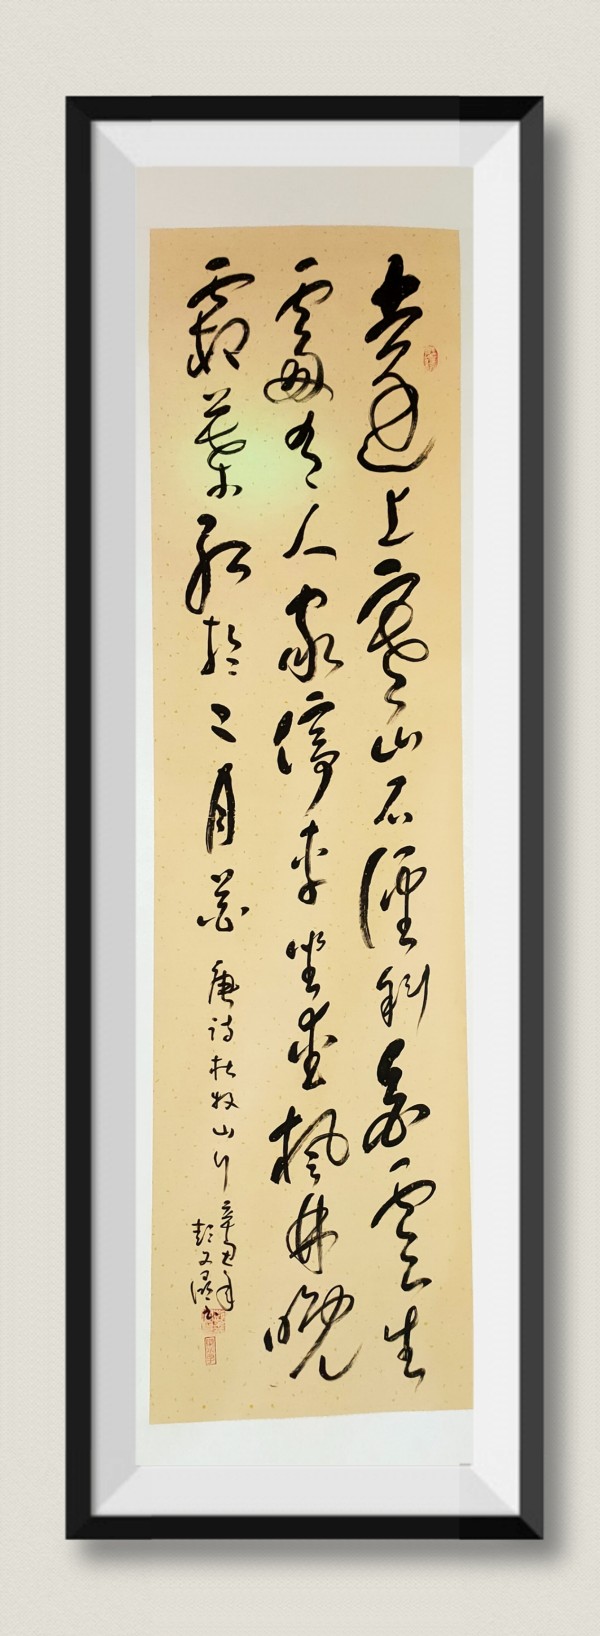 遠上寒山石徑斜白雲生
處有人家停車坐愛楓林晚
霜葉紅於二月花 唐詩杜牧山行
辛丑年
彭